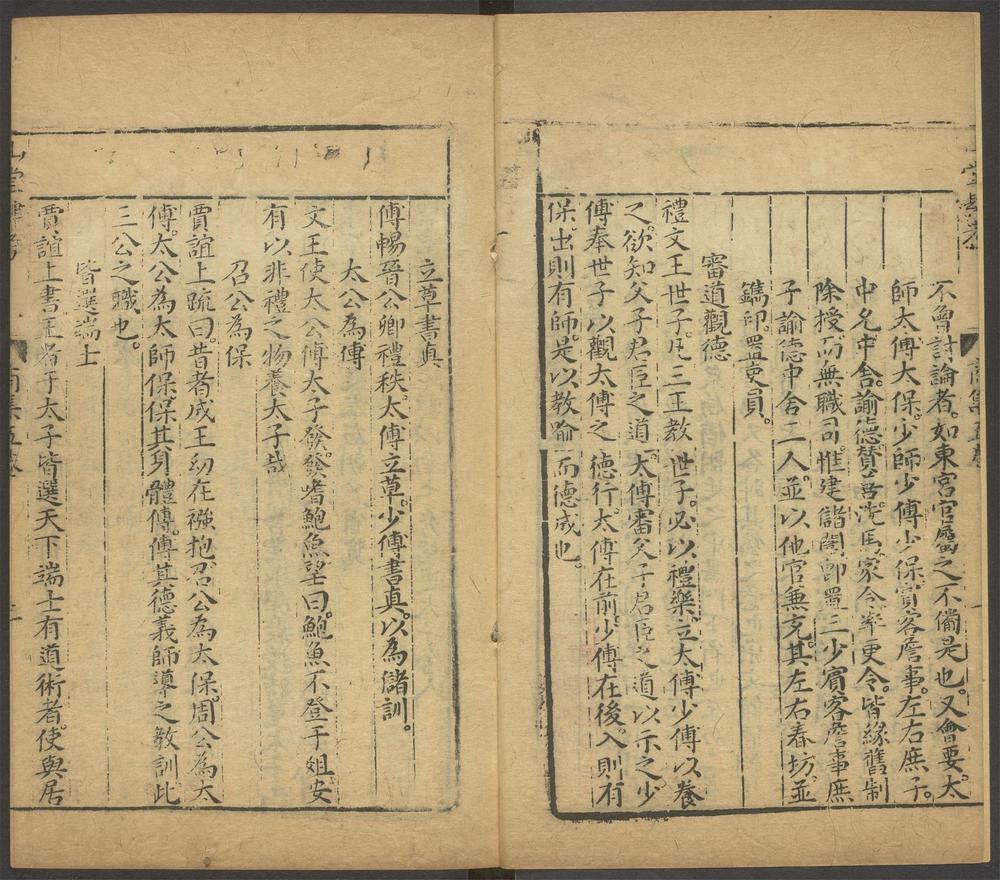 不曾討論者。如東宮官屬之不備是也。又會要。太
師太傅太保。少師少傅少保。賓客詹事。左右庶子。
中允中舍。諭德贊善洗馬。家令率更令。皆緣舊制
除授。而無職司。惟建儲闈即置三少賓客詹事庶
子諭德中舍二人。並以他官兼充。其左右春坊。並
鑄印。置吏員。
審道觀德
禮文王世子。凡三王教世子。必以禮樂。立太傅少傅以養
之。欲知父子君臣之道。太傅審父子君臣之道以示之。少
傅奉世子以觀太傅之德行。太傅在前。少傅在後。入則有
保。出則有師。是以教喻而德成也。
立草書真
傅暢晉公卿禮秩。太傅立草。少傅書真。以為儲訓。
太公為傅
文王使太公傅太子發。發嗜鮑魚。望曰。鮑魚不登于俎。安
有以非禮之物養太子哉
召公為保
賈誼上疏曰。昔者成王幼在襁抱。召公為太保。周公為太
傅。太公為太師。保保其身體。傅傅其德義。師導之教訓。此
三公之職也。
皆選端士
賈誼上書
子太子皆選天下端士有道術者。使與居